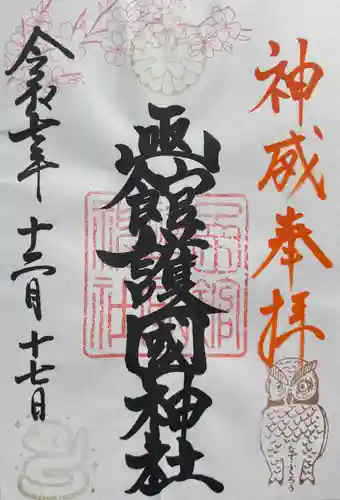 神威奉拝
函館護國神社
令和七年 十二月 十七日